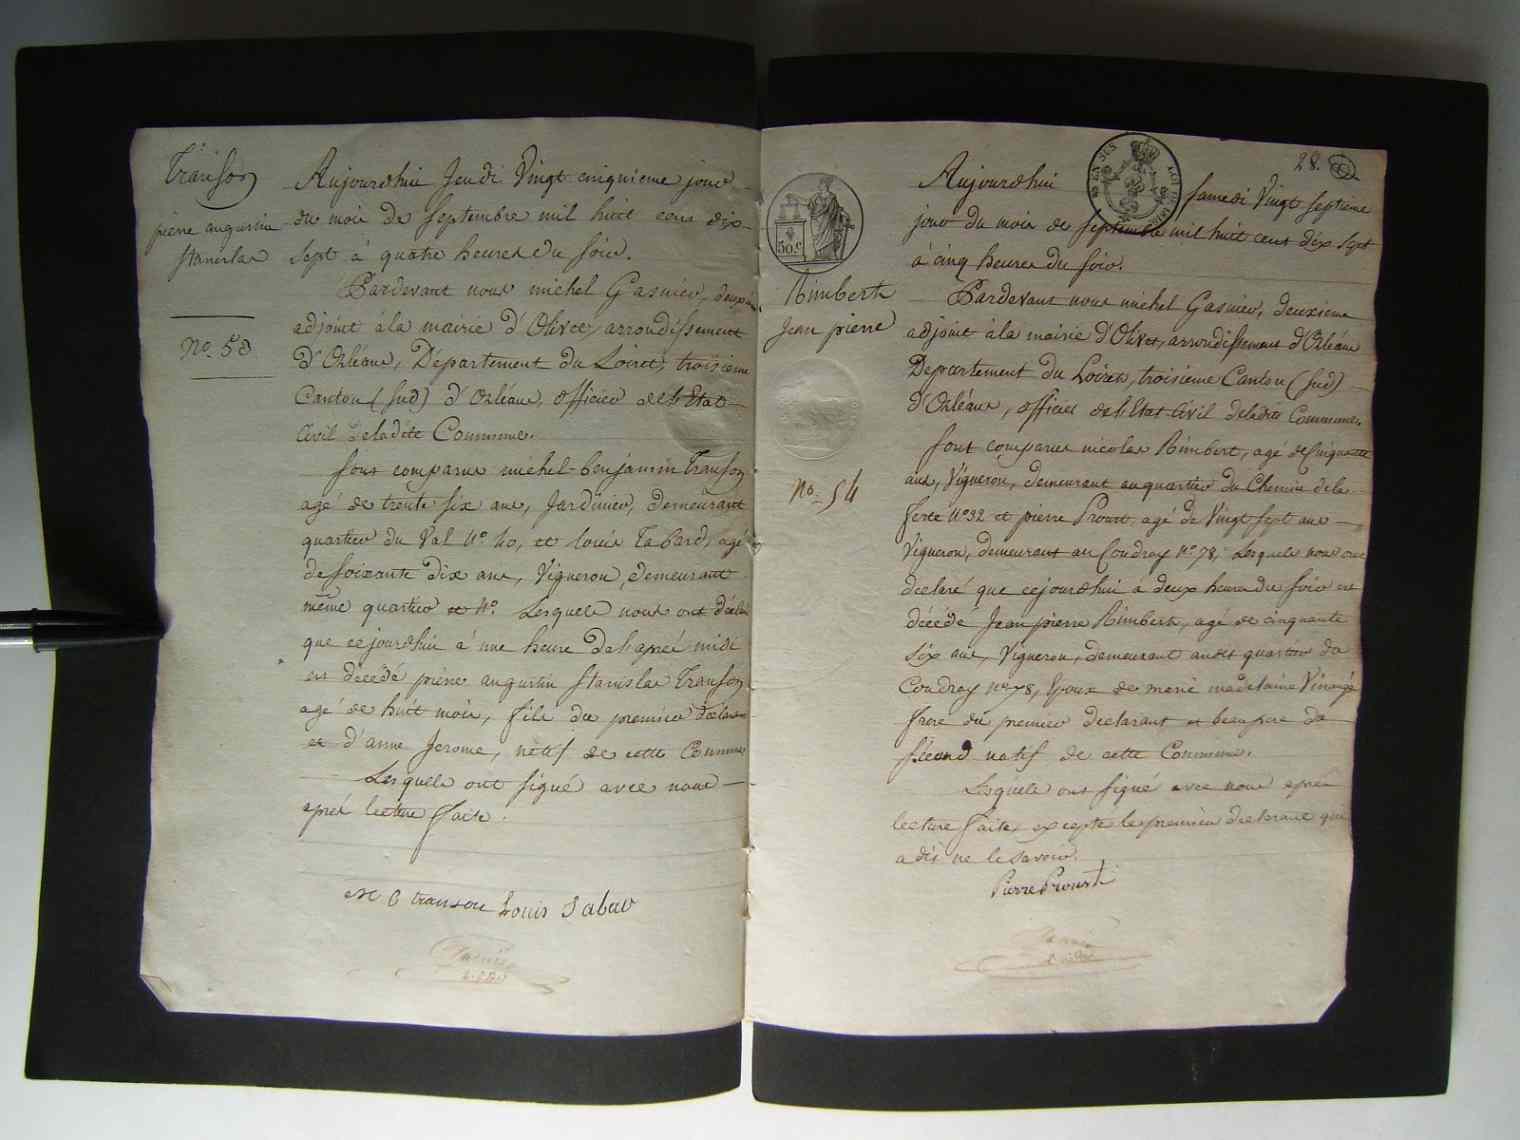 Transon
pierre augustin
stanislas
No. 53
Aujourdhui Jeudi Vingt cinquieme jour
du mois de Septembre mil huit cens dix
sept à quatre heures du soir.
Pardevant nous michel Gasnier, deuxieme
adjoint à la mairie d'Olivet, arrondissement
d'Orléans, Département du Loiret, troisieme
Canton (Sud) d'Orléans, officier de l'Etat
Civil de ladite Commune.
Sont comparus michel-benjamin Transon
agé de trente six ans, Jardinier, demeurant
quartier du Val N° 40, et louis Tabard, agé
de soixante dix ans, Vigneron, demeurant
même quartier et N°. Lesquels nous ont déclaré
que cejourdhui à une heure de l'après midi
est décédé pierre augustin stanislas Transon
agé de huit mois, fils du premier déclarant
et d'anne Jerome, natif de cette Commune
Lesquels ont signé avec nous
après lecture faite.
M B transon Louis Tabar
Gasnier
28.
Rimbert
Jean pierre
50 c
No. 54
Aujourdhui Samedi Vingt septieme
jour du mois de Septembre mil huit cent dix sept
à cinq heures du soir.
Pardevant nous michel Gasnier, deuxieme
adjoint à la mairie d'Olivet, arrondissement d'Orléans
Departement du Loiret, troisieme Canton (Sud)
d'Orléans, officier de l'Etat Civil de ladite Commune.
Sont comparus nicolas Rimbert, agé de Cinquante
ans, Vigneron, demeurant au quartier du Chemin de la
ferté N° 32 et pierre Proust, agé de Vingt sept ans
Vigneron, demeurant au Coudray N° 78, Lesquels nous ont
declaré que cejourdhui à deux heures du soir est
décédé Jean pierre Rimbert, agé de cinquante
six ans, Vigneron, demeurant audit quartier du
Coudray N° 78, Epoux de marie madelaine
frere du premier declarant et beau pere du
second natif de cette Commune.
Lesquels ont signé avec nous après
lecture faite, excepté le premier declarant qui
a dit ne le savoir.
Pierre Proust
Gasnier